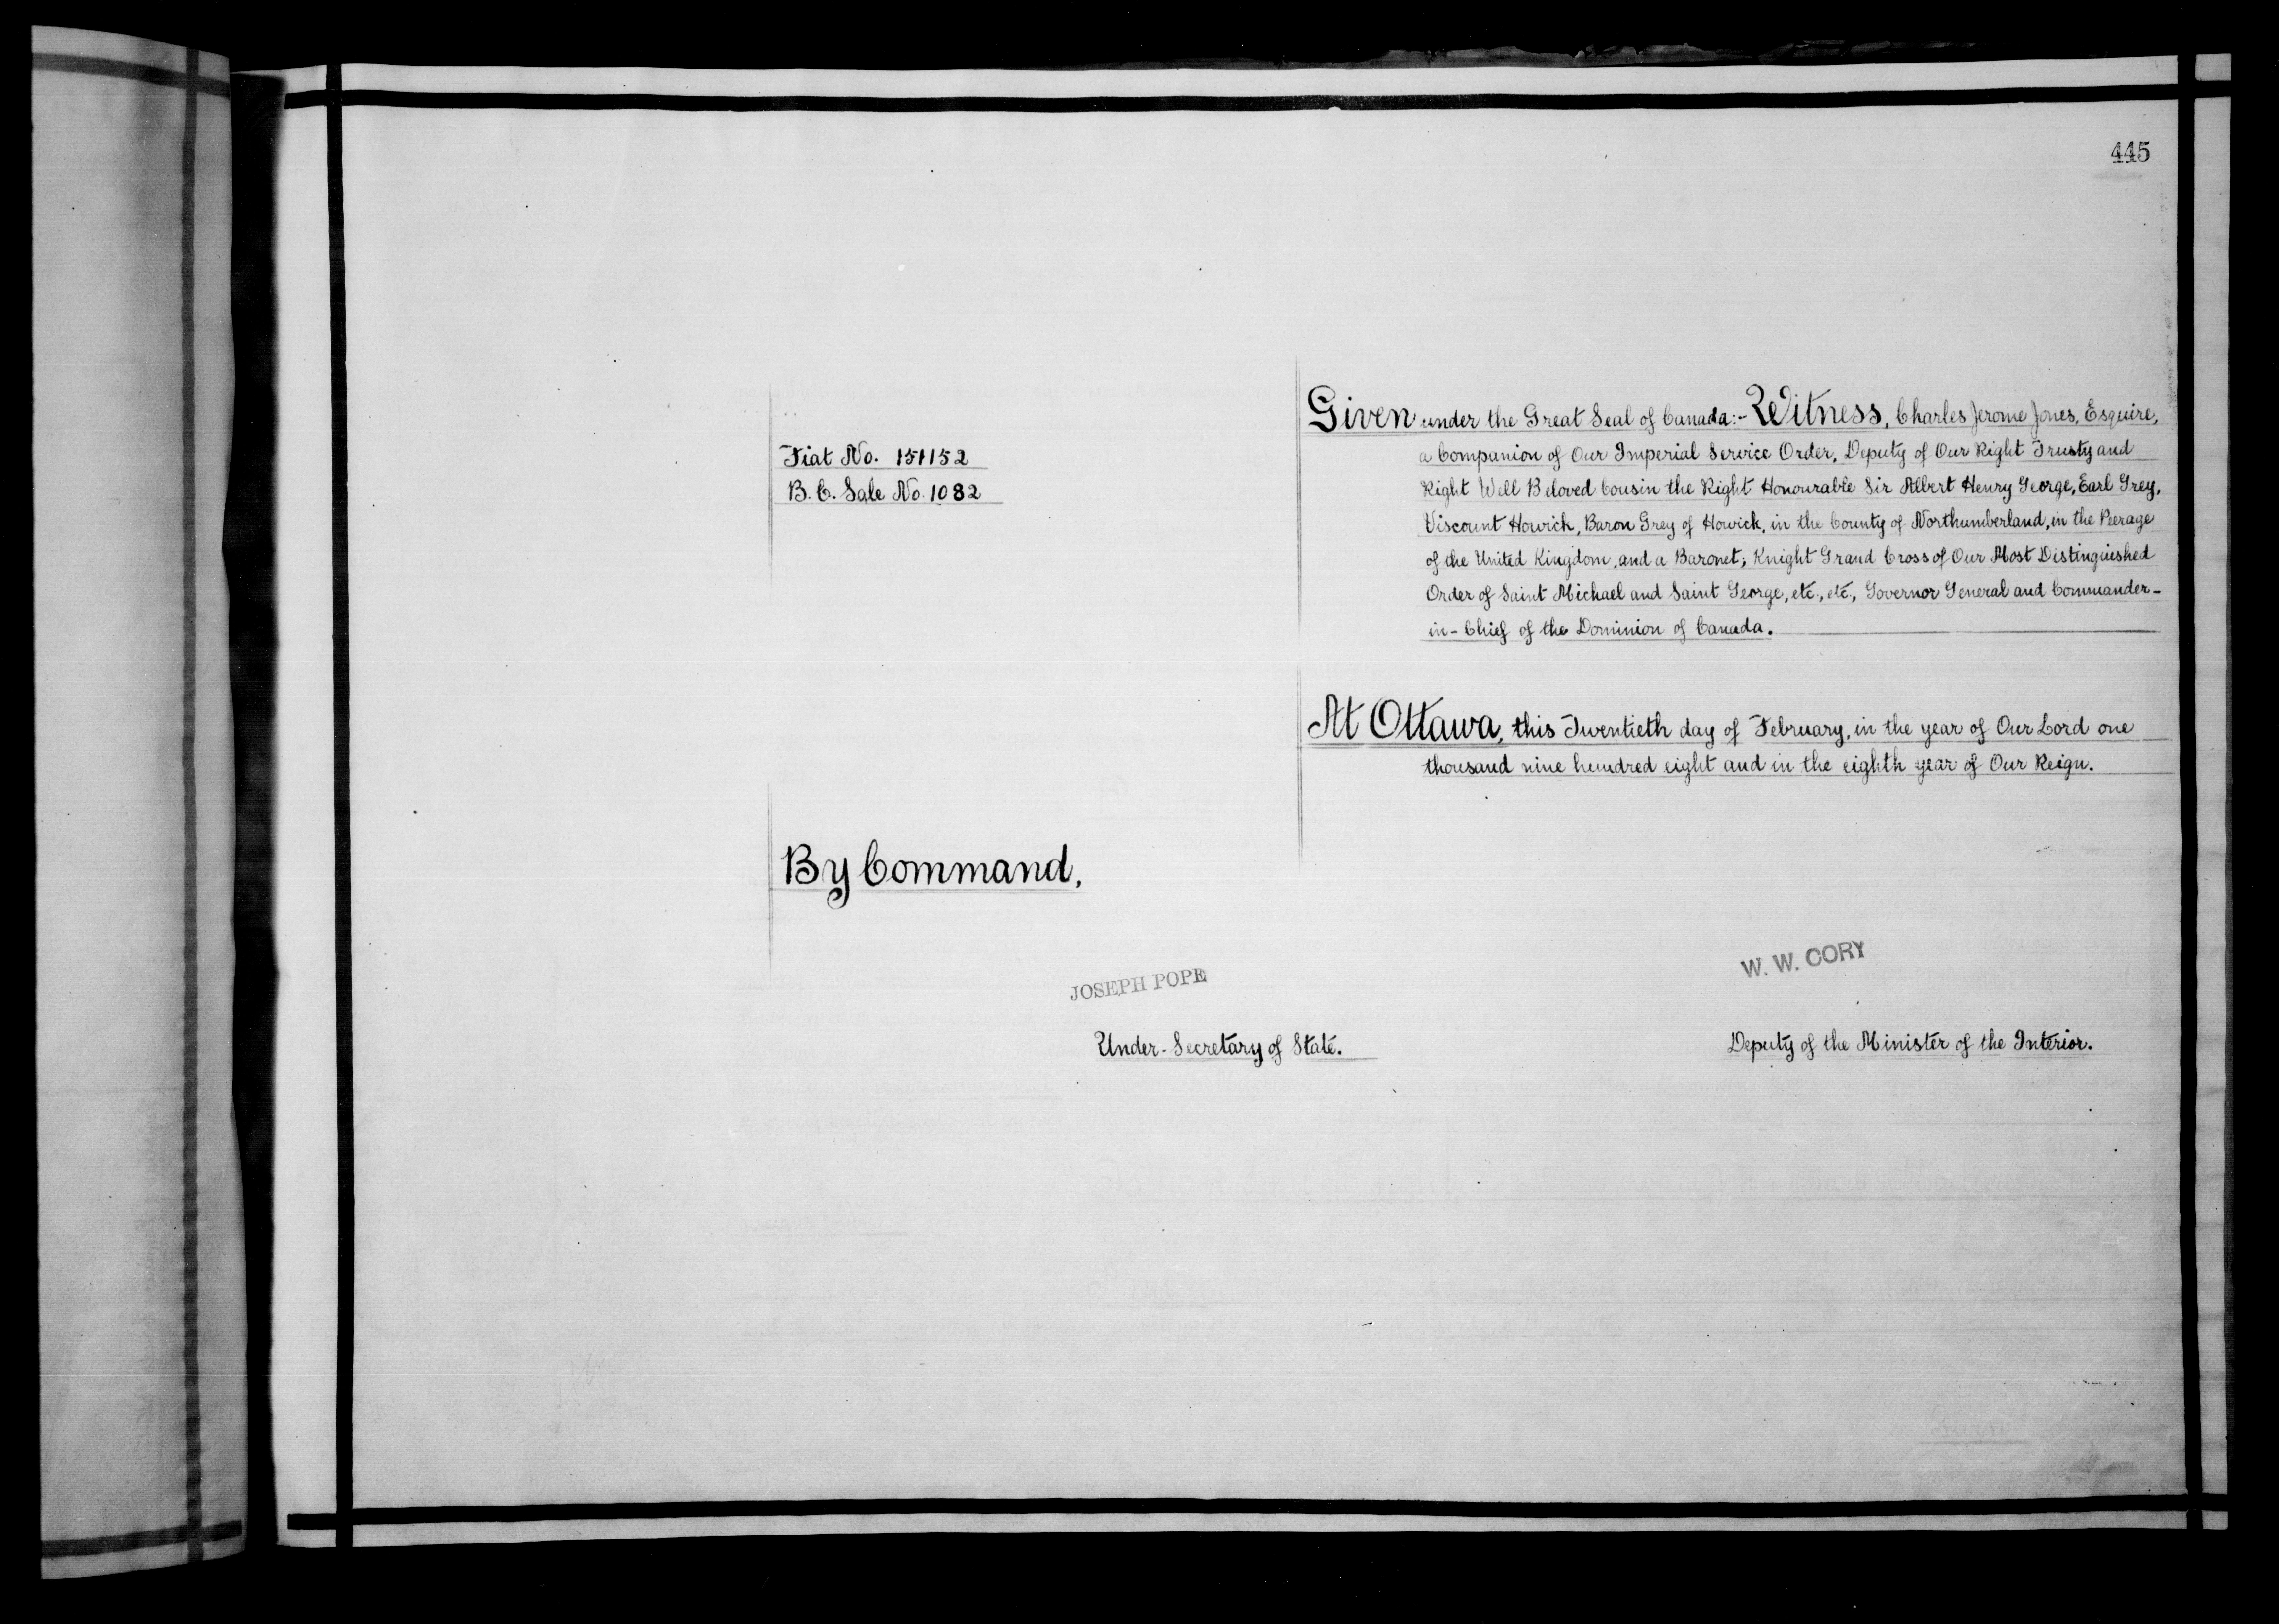 445
Given under the Great Seal of Canada:- Witness, Charles Jerome Jones, Esquire,
a Companion of Our Imperial Service Order, Deputy of Our Right Trusty and
Right Well Beloved Cousin the Right Honourable Sir Albert Henry George, Earl Grey,
Viscount Howick, Baron Grey of Howick, in the County of Northumberland, in the Peerage
of the United Kingdom, and a Baronet; Knight Grand Cross of Our Most Distinguished
Order of Saint Michael and Saint George, etc., etc., Governor General and Commander-
in-Chief of the Dominion of Canada.
Fiat No. 151152
B.C. Sale No. 1082
At Ottawa, this Twentieth day of February, in the year of Our Lord one
thousand nine hundred eight and in the eighth year of Our Reign.
By Command,
JOSEPH POPE
Under-Secretary of State.
W. W. CORY
Deputy of the Minister of the Interior.